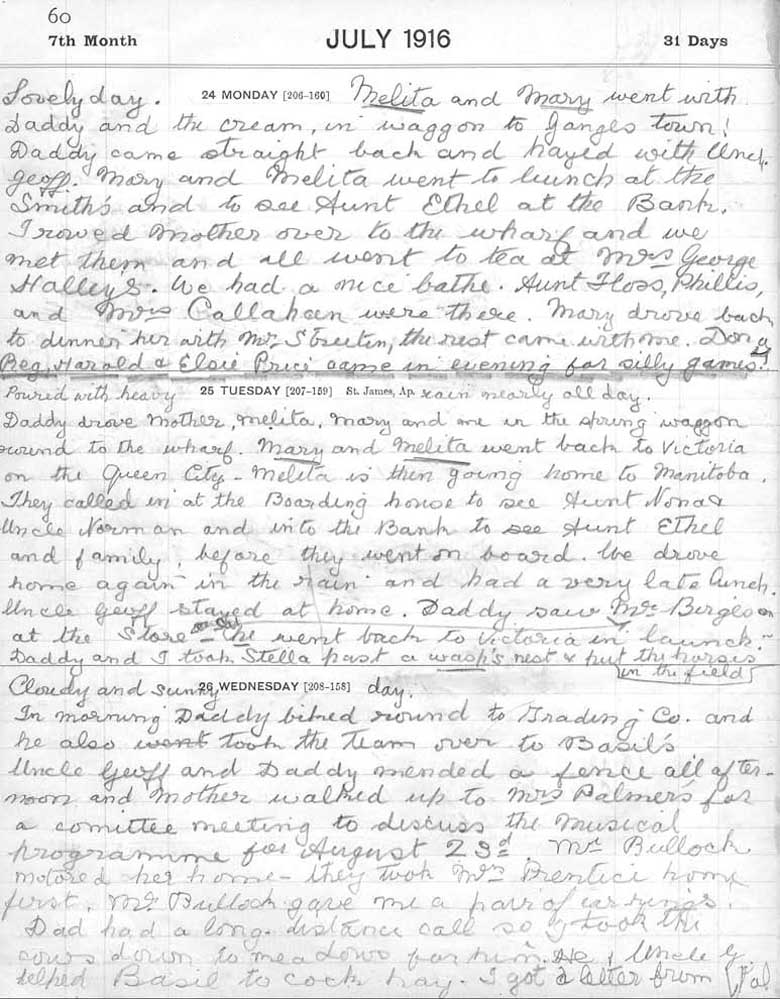 60
7th Month JULY 1916 31 Days
Lovely day. 24 MONDAY [206-160] Melita and Mary went with
Daddy and the cream, in waggon to Ganges town!
Daddy came straight back and hayed with Uncl.
Geoff. Mary and Melita went to lunch at the
Smith's and to see Aunt Ethel at the Bank.
I rowed Mother over to the wharf and we
met them and all went to tea at Mrs George
Halley's. We had a nice bathe. Aunt Floss, Phillis,
and Mrs Callahan were there. Mary drove back
to dinner her with Mr. the rest came with me. Dora
Reg, Harold & Elsie Price came in evening for silly games.
Poured with heavy 25 TUESDAY [207-159] St. James, Ap. rain nearly all day.
Daddy drove Mother, Melita, Mary and me in the spring waggon
round to the wharf. Mary and Melita went back to Victoria
on the Queen City - Melita is then going home to Manitoba.
They called in at the Boarding house to see Aunt Nona &
Uncle Norman and into the Bank to see Aunt Ethel
and family, before they went on board. We drove
home again in the rain and had a very late lunch.
Uncle Geoff stayed at home. Daddy saw Mr. Burgeson
at the Store - he went back to Victoria in launch.
Daddy and I took Stella past a wasp's nest & put the horses
in the field
Cloudy and sunny 26 WEDNESDAY [208-158] day.
In morning Daddy biked round to Trading Co. and
he also went took the team over to Basil's
Uncle Geoff and Daddy mended a fence all after-
noon and Mother walked up to Mrs Palmer's for
a comittee meeting to discuss the Musical
programme for August 23rd. Mr Bullock
motored her home - they took Mrs Prentice home
first. Mr Bullock gave me a pair of earrings.
Dad had a long distance call so I took the
cows down to meadows for him. He & Uncle G.
helped Basil to cock hay. I got a letter from